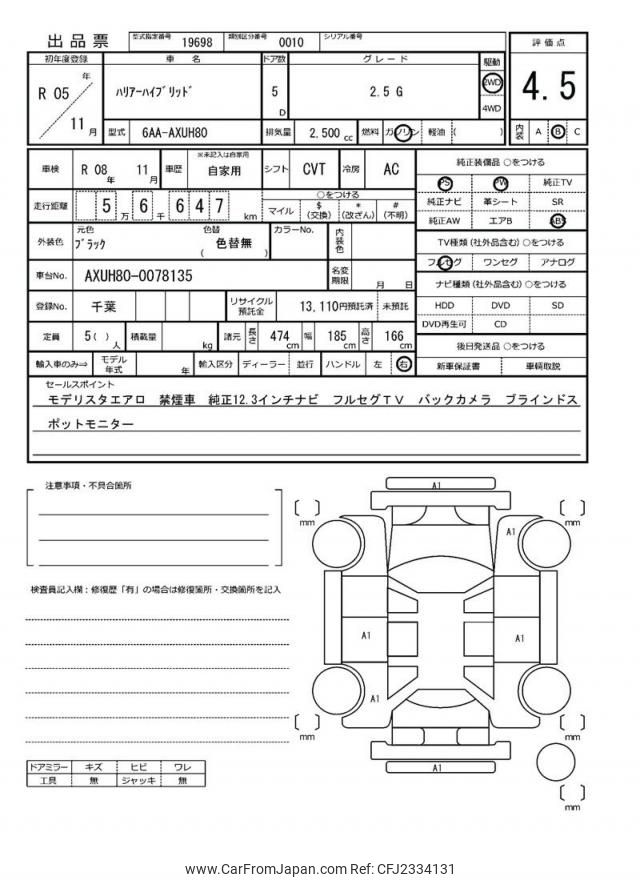 出品票
型式指定番号 19698 類別区分番号 0010 シリアル番号
初年度登録 車 名 ドア数 グレード 駆動 評価点
R 05 年 11 月 ﾊﾘｱｰﾊｲﾌﾞﾘｯﾄﾞ 5 D 2.5 G 2WD 4WD 4.5
型式 6AA-AXUH80 排気量 2,500 cc 燃料 ガソリン 軽油 ( ) 内装 A B C
車検 R 08 年 11 月 車歴 ※未記入は自家用 自家用 シフト CVT 冷房 AC
純正装備品 ○をつける
PS PW 純正TV
純正ナビ 革シート SR
純正AW エアB ABS
走行距離 5 万 6 千 6 4 7 km
○をつける
マイル $ (交換) * (改ざん) # (不明)
外装色 元色 ﾌﾞﾗｯｸ 色替 ( 色替無 ) カラーNo. 内装色
TV種類 (社外品含む) ○をつける
フルセグ ワンセグ アナログ
車台No. AXUH80-0078135 名変期限 月 日
ナビ種類 (社外品含む) ○をつける
HDD DVD SD
DVD再生可 CD
登録No. 千葉 リサイクル預託金 13,110円預託済 未預託
定員 5 ( ) 人 積載量 kg 諸元 長さ 474 cm 幅 185 cm 高さ 166 cm
後日発送品 ○をつける
新車保証書 車輌取説
輸入車のみ⇨ モデル年式 年 輸入区分 ディーラー 並行 ハンドル 左 右
セールスポイント
モデリスタエアロ 禁煙車 純正12.3インチナビ フルセグTV バックカメラ ブラインドス
ポットモニター
注意事項・不具合箇所
検査員記入欄：修復歴「有」の場合は修復箇所・交換箇所を記入
A1
mm mm
A1
A1 A1
A1
mm mm
A1
mm
ドアミラー キズ ヒビ ワレ
工具 無 ジャッキ 無
www.CarFromJapan.com Ref: CFJ2334131